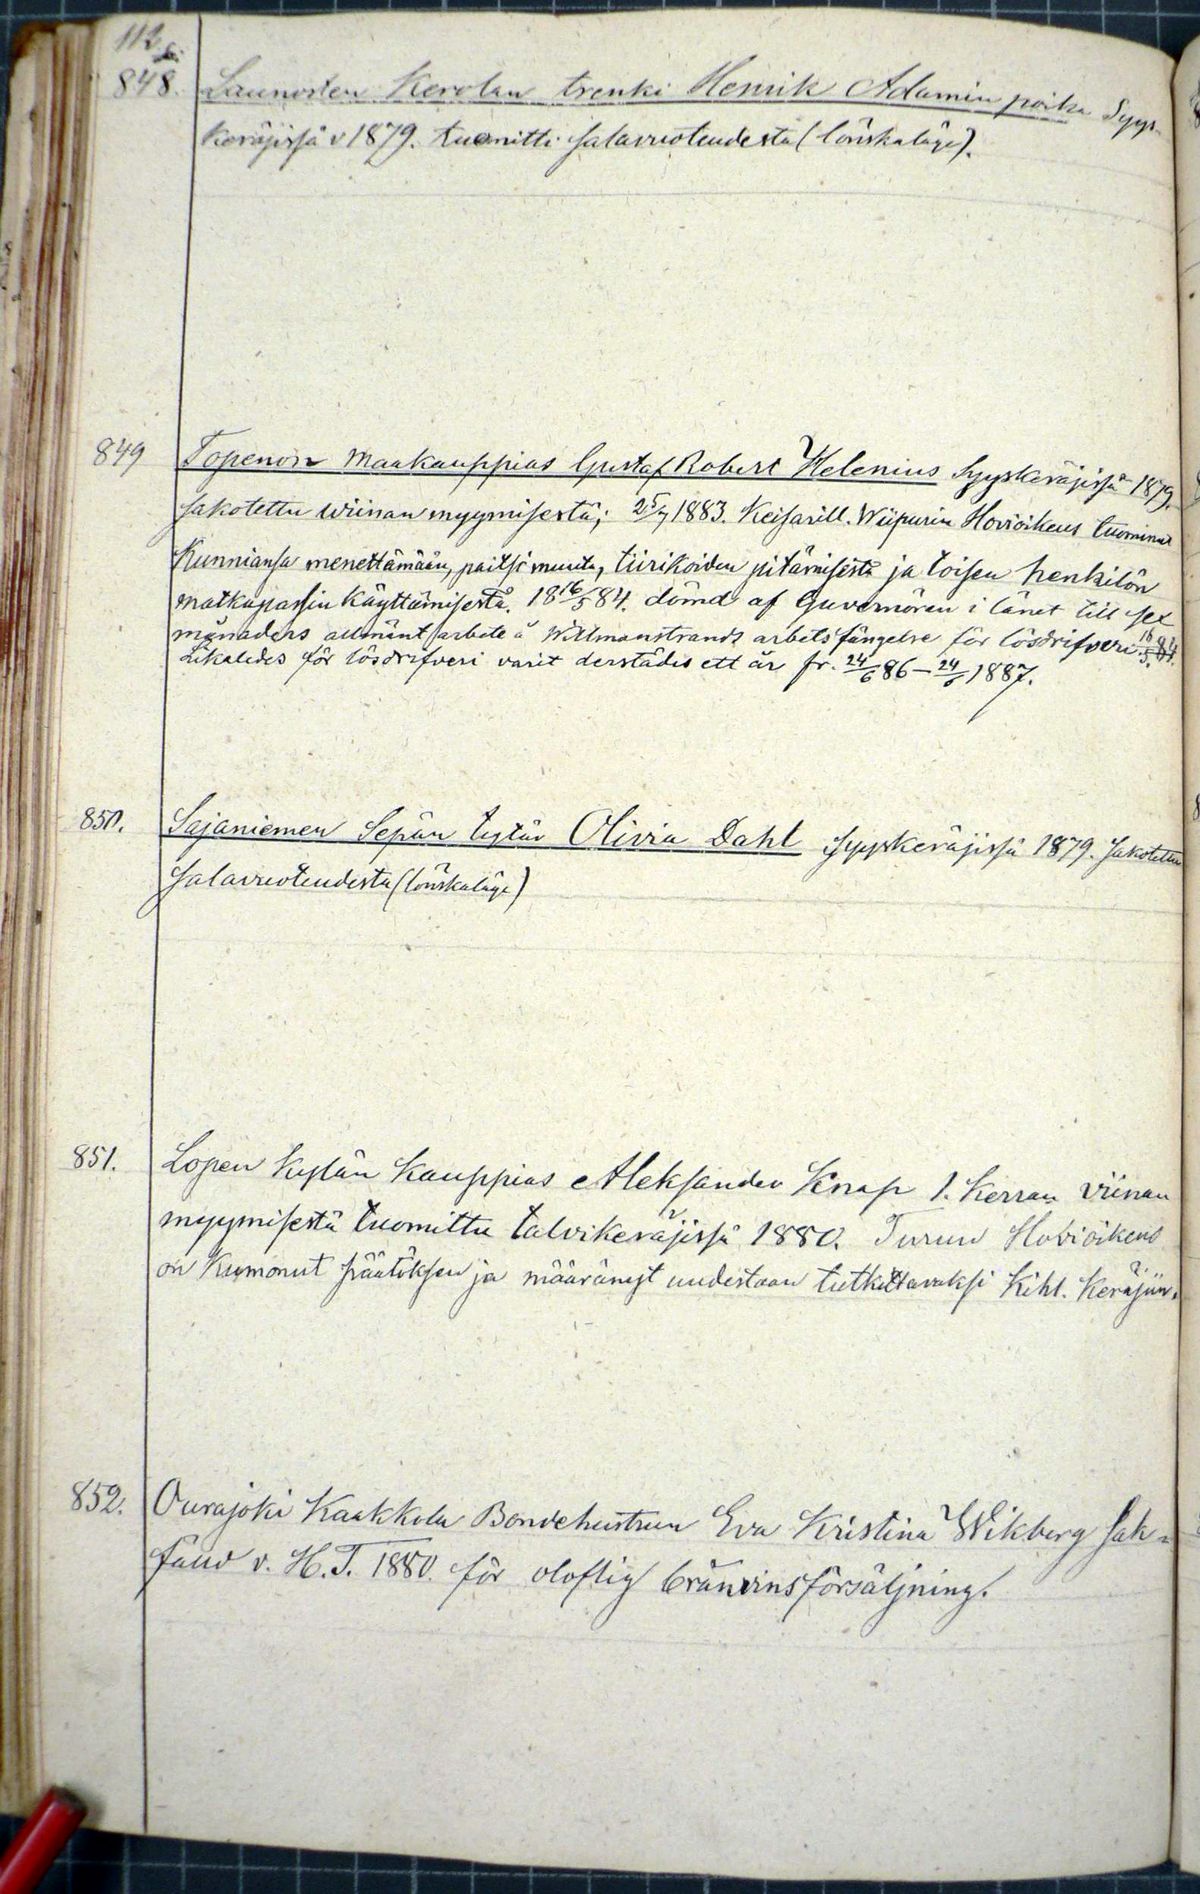 112
848. Launosten Kerolan trenki Henrik Adamin poika Syys-
keräjissä v 1879. tuomittu salavuoteudesta (lönskaläge).
849 Topenon maakauppias Gustaf Robert Helenius Syyskeräjissä 1879.
sakotettu wiinan myymisestä; 25/7 1883. Keisarill. Wiipurin Hovioikeus tuominnut
kunniansa menettämään, paitsi muuta, tiirikoiden pitämisestä ja toisen henkilön
matkapassin käyttämisestä. 18 16/5 84. dömd af Guvernören i länet till sex
månaders allmänt arbete å Willmanstrands arbetsfängelse för lösdrifveri 16/5 84.
Likaledes för lösdrifveri varit derstädes ett år fr. 24/6 86 – 24/6 1887.
850. Sajaniemen Sepän tytär Olivia Dahl syyskeräjissä 1879. sakotettu
salavuoteudesta (lönskaläge)
851. Lopen kylän kauppias Aleksander Knap 1. kerran viinan
myymisestä tuomittu talvikeräjissä 1880. Turun Hovioikeus
on kumonut päätöksen ja määrännyt uudestaan tutkittavaksi Kihl. keräjiin.
852. Ourajoki Kaakkola Bondehustrun Eva Kristina Wikberg sak-
fäld v. H.T. 1880 för oloflig bränvinsförsäljning.